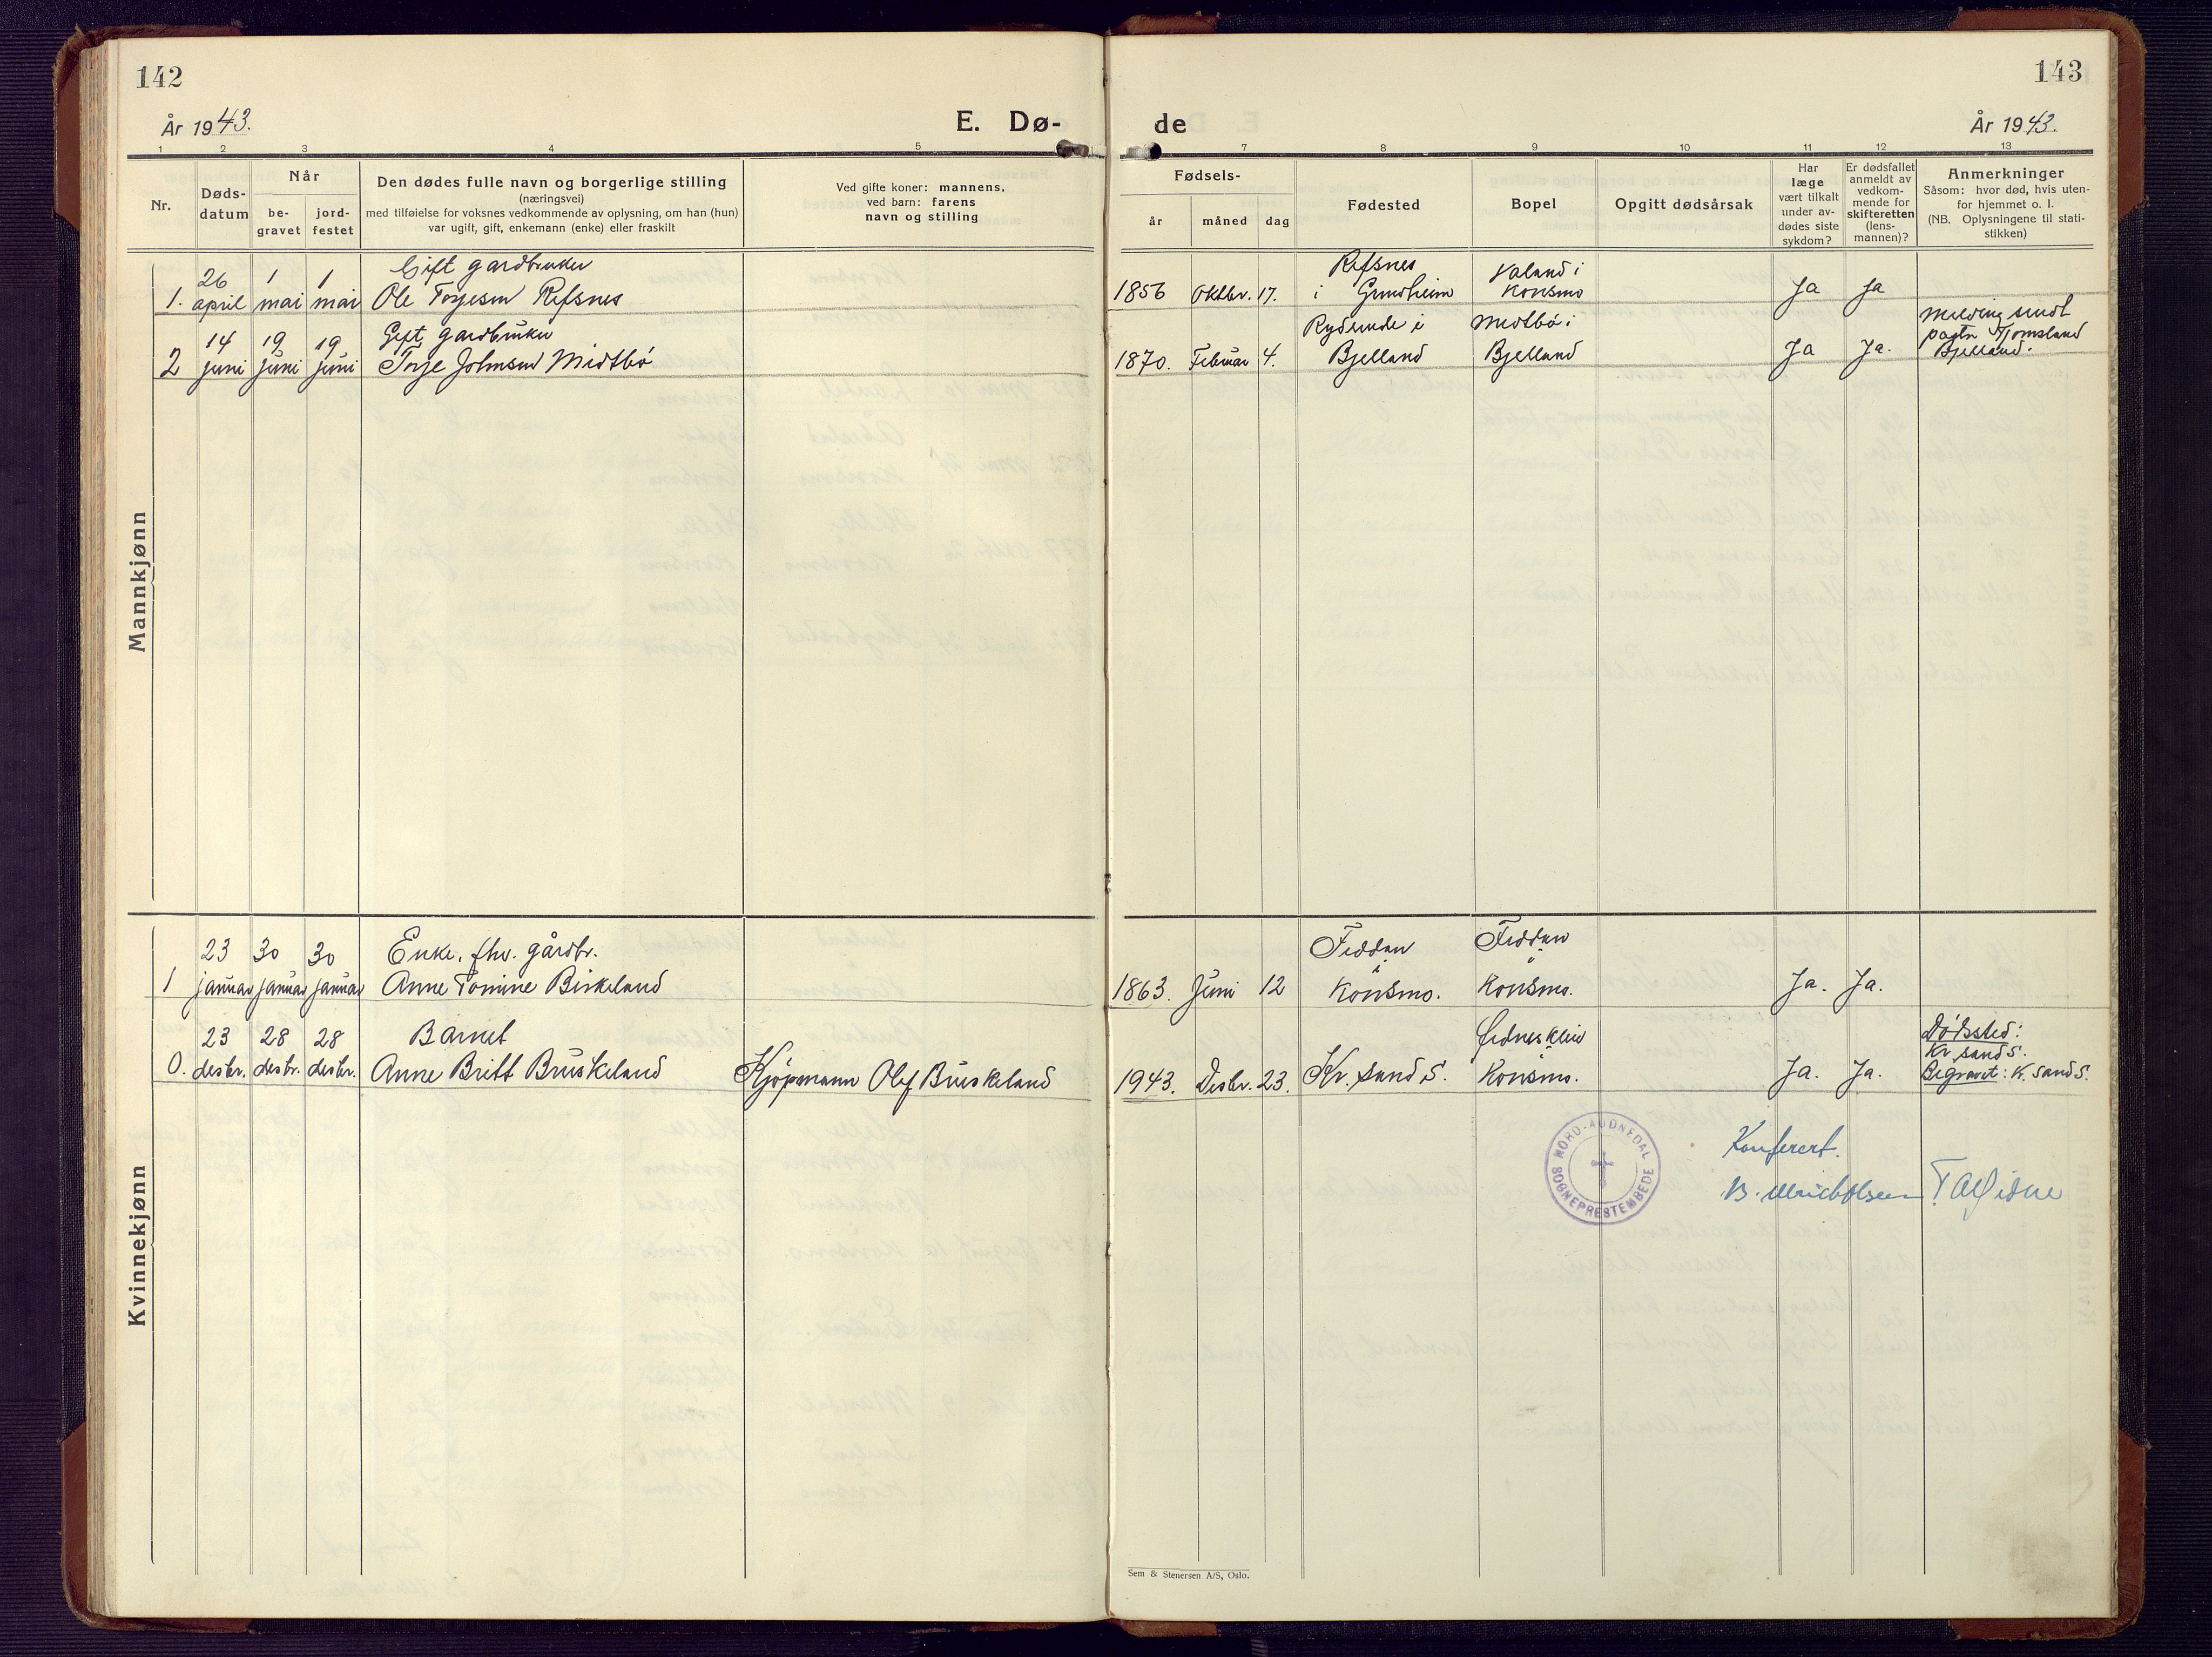 142
År 1943.
E. Dø-
1 2 3 4 5
Nr.
Døds-
datum
Når
be-
gravet
jord-
festet
Den dødes fulle navn og borgerlige stilling
(næringsvei)
med tilføielse for voksnes vedkommende av oplysning, om han (hun)
var ugift, gift, enkemann (enke) eller fraskilt
Ved gifte koner: mannens,
ved barn: farens
navn og stilling
Mannkjønn
26 1 1 Gift gardbruker
1. april mai mai Ole Torjesen Refsnes
14 19 19 Gift gardbruker
2 juni juni juni Torje Johnsen Midtbö
Kvinnekjønn
23 30 30 Enke, fhv. gårdbr.
1 januar januar januar Anne Tomine Birkeland
23 28 28 Barnet
0. desbr. desbr. desbr. Anne Britt Bruskeland Kjöpmann Olaf Bruskeland
143
de
År 1943.
7 8 9 10 11 12 13
Fødsels-
år
måned
dag
Fødested
Bopel
Opgitt dødsårsak
Har
læge
vært tilkalt
under av-
dødes siste
sykdom?
Er dødsfallet
anmeldt av
vedkom-
mende for
skifteretten
(lens-
mannen)?
Anmerkninger
Såsom: hvor død, hvis uten-
for hjemmet o. l.
(NB. Oplysningene til stati-
stikken)
Refsnes Valand i
1856 Oktbr. 17. i Grindheim Konsmo Ja Ja
melding sendt
Midtbö i
pastor Tjomsland
1870. Februar 4. Bjelland Bjelland Ja Ja. Bjelland.
Feddan Feddan
i i
1863. Juni 12 Konsmo. Konsmo. Ja. Ja.
Dödssted:
Kr sand S.
1943. Desbr. 23. Kr. sand S. Konsmo. Ja. Ja. Begravet: K. sand S.
NORD-AUDNEDAL
SOGNEPRESTEMBEDE
Konferert.
B. Ulrich Olsen
Sem & Stenersen A/S, Oslo.